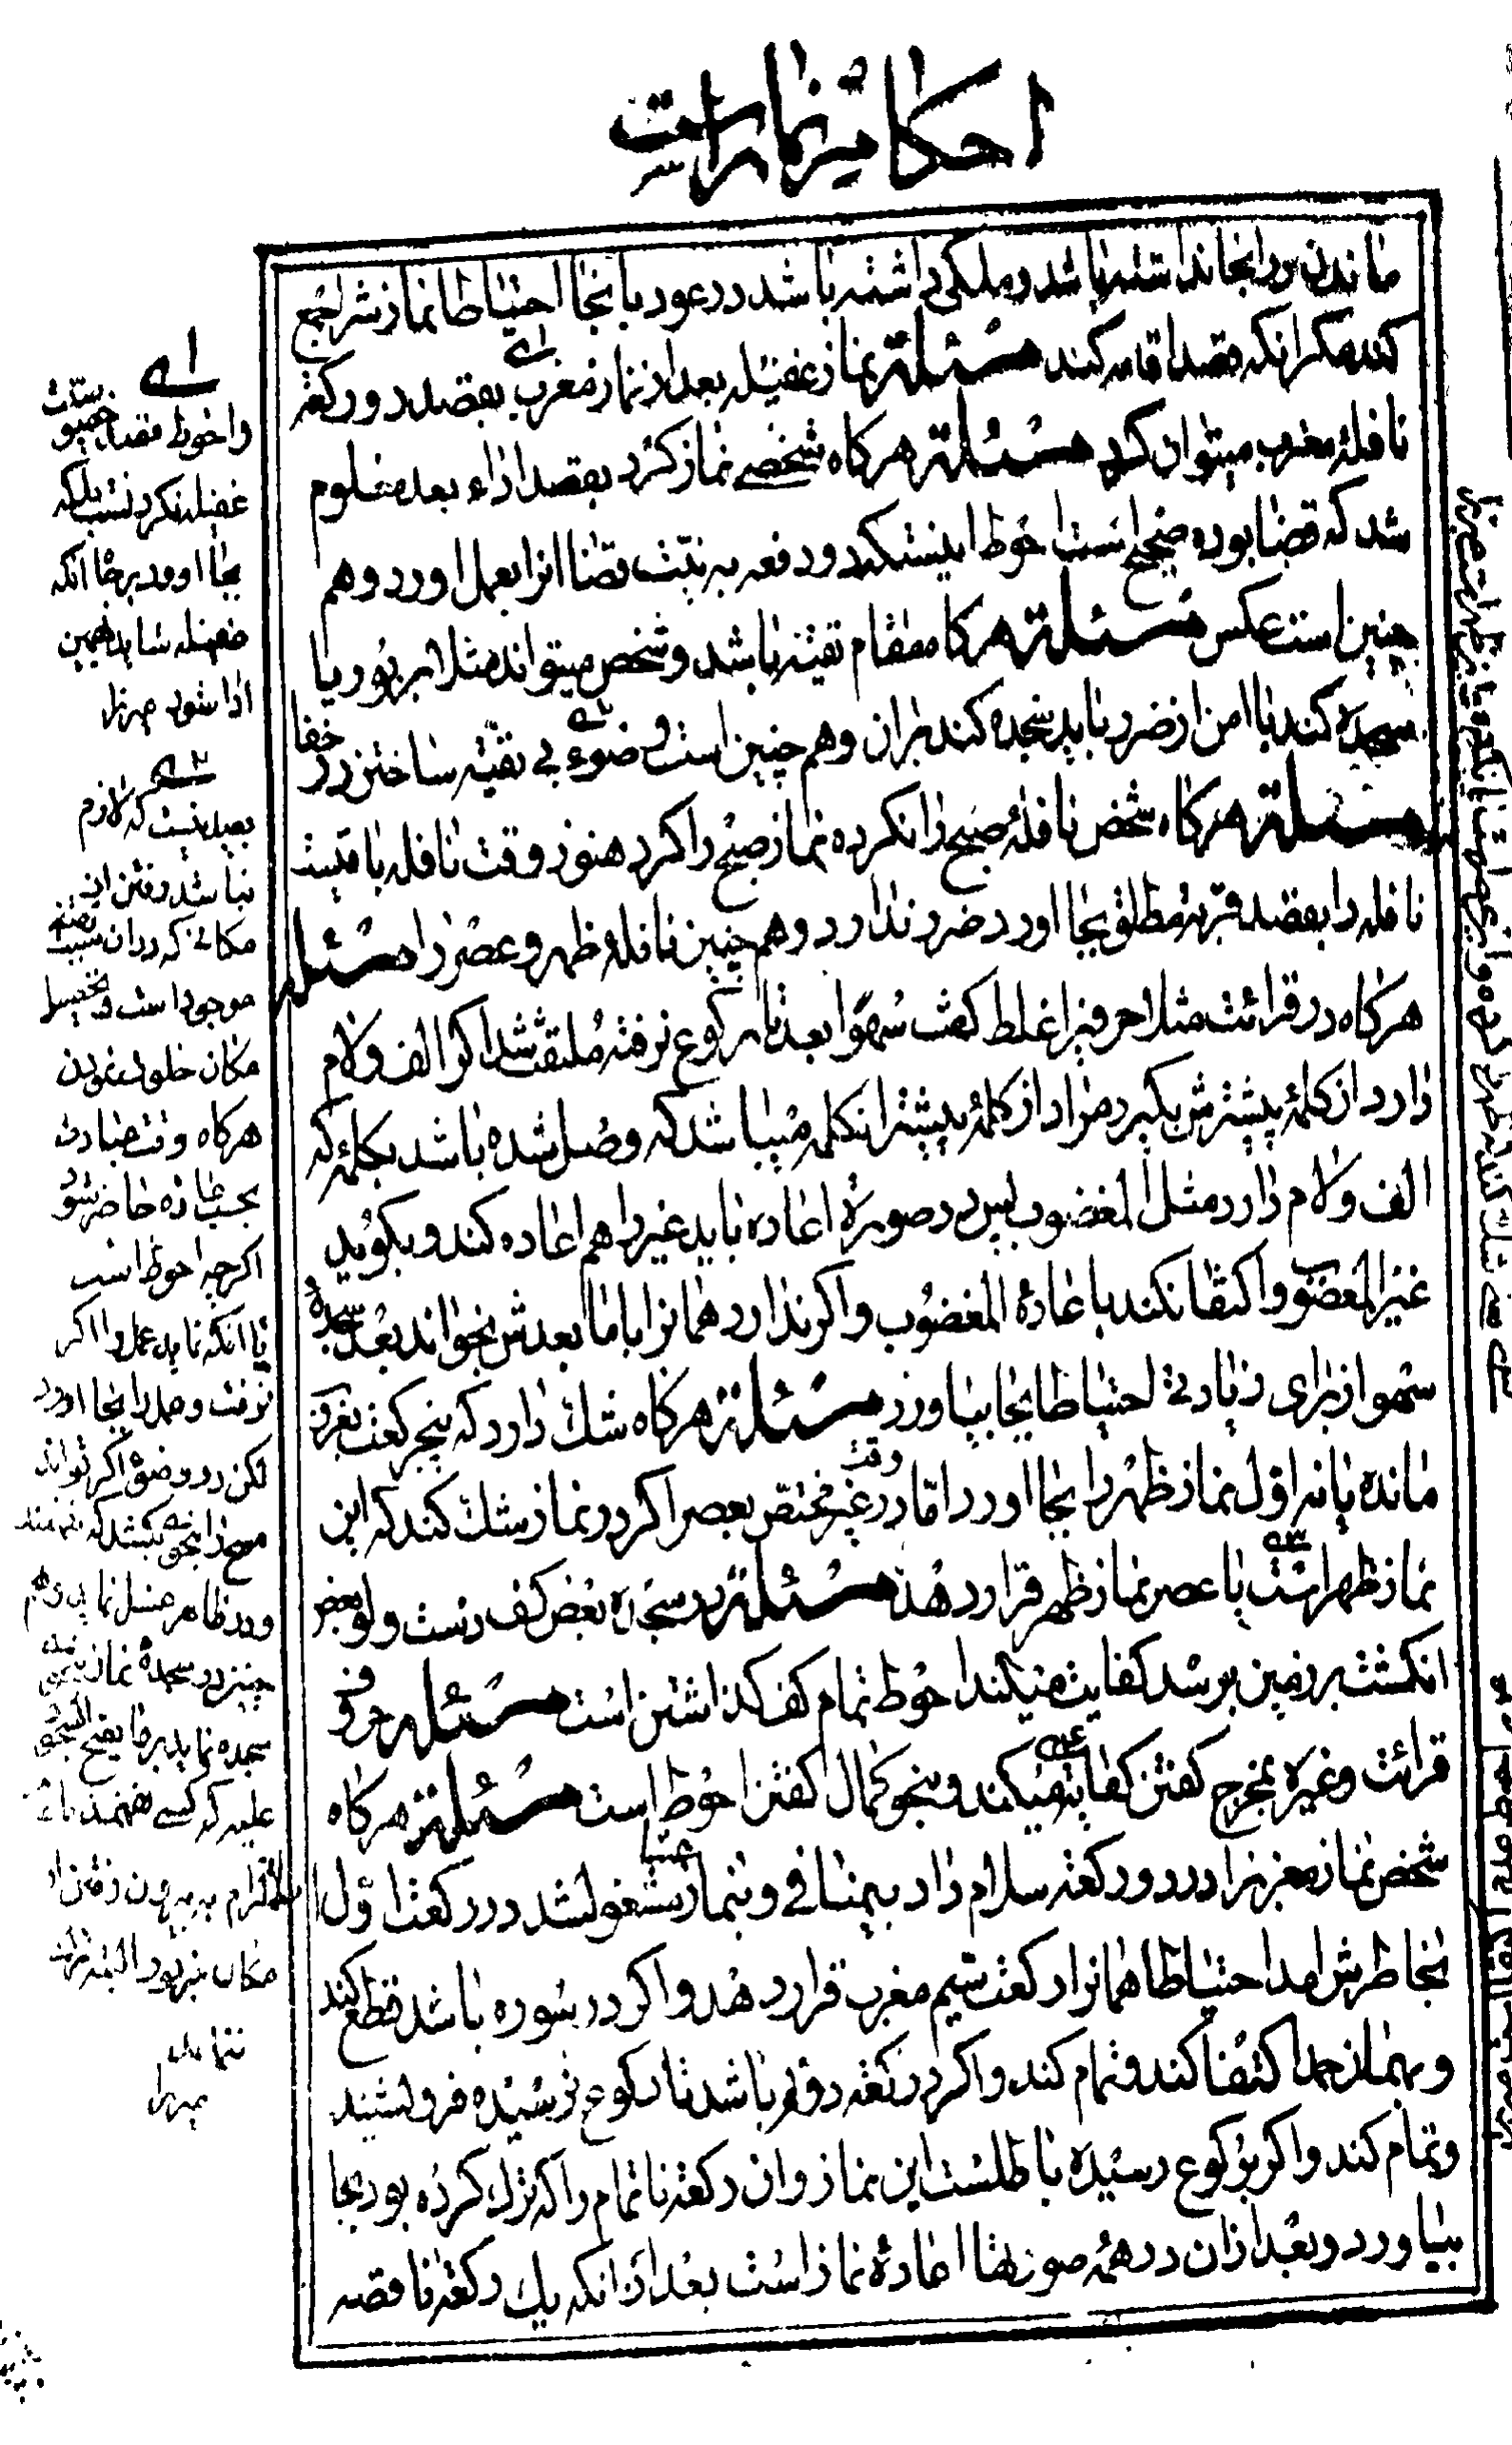 احکام نماز است
ماندن در انجا نداشته باشد و ملکی داشته باشد در عود بانجا احتیاطا نمازش را جمع
کند مگر آنکه قصد اقامه کند مسئلة نماز غفیله بعد از نماز مغرب بقصد دو رکعة
نافلهٔ مغرب میتوان کرد مسئلة هرکاه شخصے نماز کرد بقصد اداء بعد معلوم
شد که قضا بوده صحیح است احوط اینستکه دو دفعه به نیّت قضا انرا بعمل اورد و هم
چنین است عکس مسئلة هرکاه مقام تقیّه باشد و شخص میتواند مثلا بر بوریا
سجده کند با امن از ضرر باید سجده کند بران و هم چنین است وضوء بی تقیّه ساختن در خفا
مسئلة هرکاه شخص نافلهٔ صبح را نکرده نماز صبح را کرد هنوز وقت نافله باقیست
نافله را بقصد قربة مطلق بجا اورد ضرر ندارد و هم چنین نافلهٔ ظهر و عصر را مسئله
هرکاه در قرائت مثلا حرفیرا غلط کفت سهوا بعد تا برکوع نرفته ملتفت شد اکر الف و لام
دارد از کلمهٔ پیشترش بکیرد مراد از کلمهٔ پیشتر انکلمه میباشد که وصل شده باشد بکلمهٔ که
الف و لام دارد مثل المغضوب پس در صورة اعاده باید غیر را هم اعاده کند و بکوید
غیر المغضوب و اکتفا نکند باعادهٔ المغضوب و اکر ندارد همانرا با ما بعدش بخواند بعد سجدهٔ
سهو از برای زیادتی احتیاطا بجا بیاورد مسئلة هرکاه شك دارد که پنج رکعت بغروب
مانده یا نه اول نماز ظهر را بجا اورد اما در غیر وقت مختص بعصر اکر در نماز شك کند که این
نماز ظهر است یا عصر نماز ظهر قرار دهد مسئلة در سجده بعض کف دست ولو بعض
انکشت بر زمین برسد کفایت میکند احوط تمام کف کذاشتن است مسئله حروف
قرائت و غیره بمخرج کفتن کفایة میکند و بنحو کمال کفتن احوط است مسئلة هرکاه
شخص نماز مغربرا در دو رکعة سلام داد بی منافی و بنماز عشا مشغول شد در رکعت اوّل
بخاطرش امد احتیاطا همانرا رکعت سیم مغرب قرار دهد و اکر در سوره باشد قطع کند
و بهمان حمد اکتفا کند و تمام کند و اکر در رکعة دوم باشد تا برکوع نرسیده فرو نشیند
و تمام کند و اکر برکوع رسیده باطلست این نماز و ان رکعة ناتمام را که ترك کرده بود بجا
بیاورد و بعد ازان در همه صورتها اعادهٔ نماز است بعد از انکه یك رکعة ناقصه
و احوط قصد خصوصیّت
غفیله نکردنست بلکه
بجا اورد برجاء انکه
غفیله شاید بهمین
ادا شود میرزا
بعید نیست که لازم
نباشد رفتن از
مکانے که در ان سبب تقیّه
موجود است و تحصیل
مکان خلوت نمودن
هرکاه وقت عبادت
بحسب عاده حاضر شود
اکرچه احوط است
یا انکه نباید عمل را اکر
نرفت و عمل را بجا اورد
لکن در وضوء اکر تواند
مسح را بنحوی بکشد که نفهمند
و در ظاهر غسل نماید و هم
چنین در سجدهٔ نماز بنحوی
سجده نماید بر ما یصح السجود
علیه که کسے نفهمد
مکان نبود
میرزا